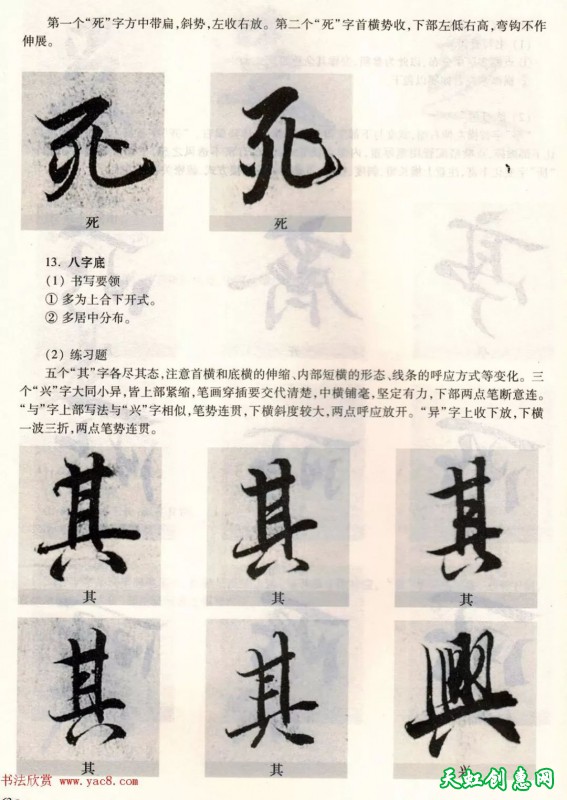 第一个“死”字方中带扁,斜势,左收右放。第二个“死”字首横势收,下部左低右高,弯钩不作
伸展。
死 死
死 死
13. 八字底
(1) 书写要领
① 多为上合下开式。
② 多居中分布。
(2) 练习题
五个“其”字各尽其态,注意首横和底横的伸缩、内部短横的形态、线条的呼应方式等变化。三
个“兴”字大同小异,皆上部紧缩,笔画穿插要交代清楚,中横铺毫,坚定有力,下部两点笔断意连。
“与”字上部写法与“兴”字相似,笔势连贯,下横斜度较大,两点呼应放开。“异”字上收下放,下横
一波三折,两点笔势连贯。
其 其 其
其 其 其
其 其 興
其 其 兴
书法欣赏 www.yac8.com
天虹创意网